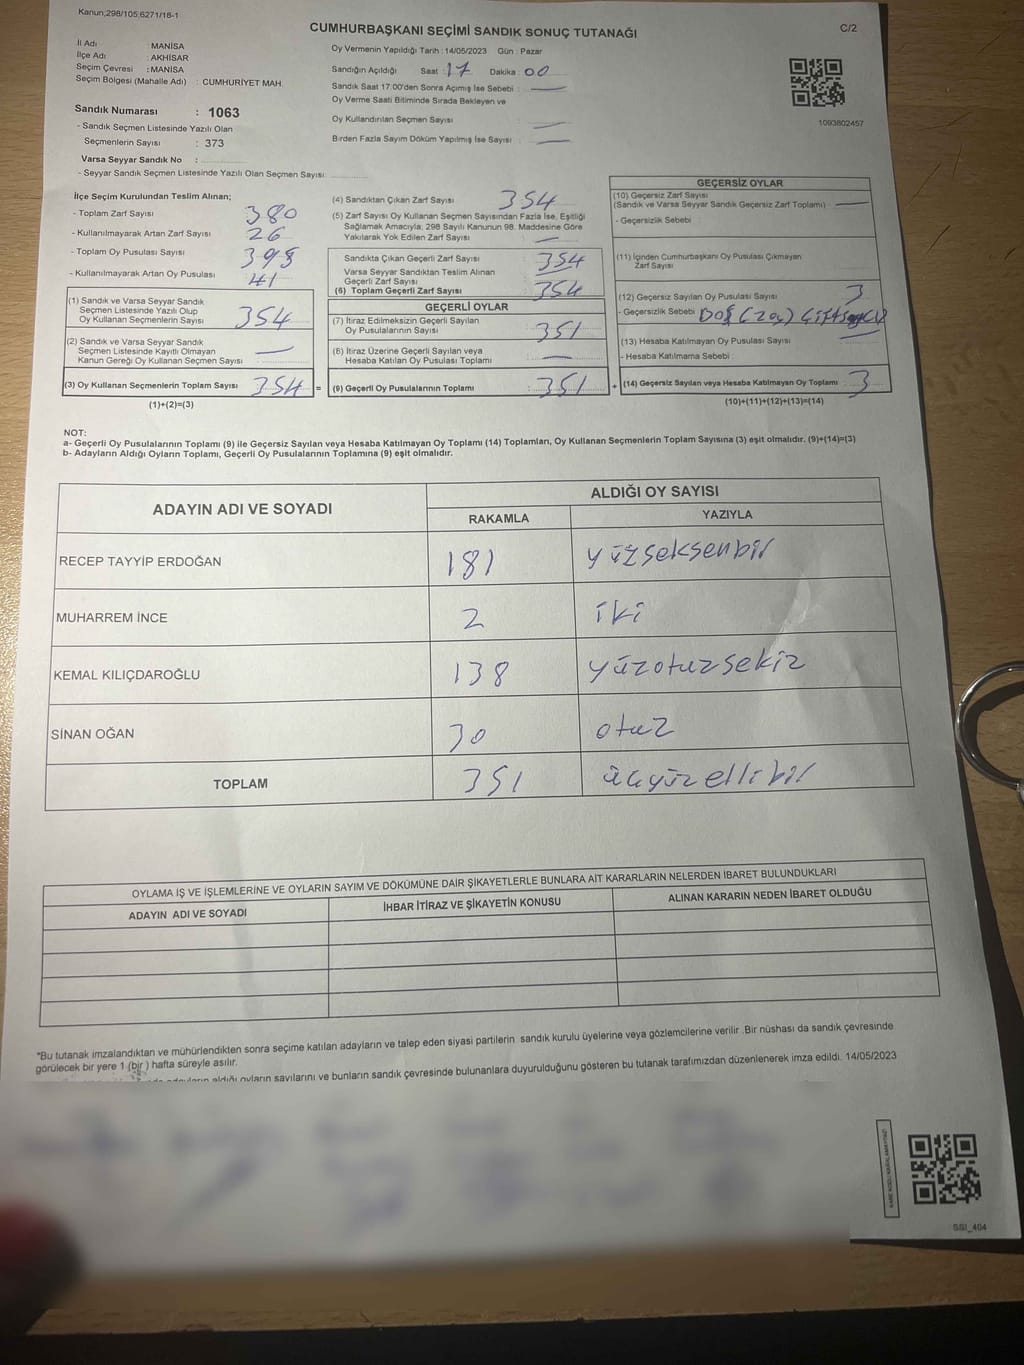 Kanun;298/105;6271/18-1
CUMHURBAŞKANI SEÇİMİ SANDIK SONUÇ TUTANAĞI
C/2
İl Adı : MANİSA
İlçe Adı : AKHİSAR
Seçim Çevresi : MANİSA
Seçim Bölgesi (Mahalle Adı) : CUMHURİYET MAH.
Sandık Numarası : 1063
- Sandık Seçmen Listesinde Yazılı Olan
Seçmenlerin Sayısı : 373
Varsa Seyyar Sandık No :
- Seyyar Sandık Seçmen Listesinde Yazılı Olan Seçmen Sayısı:
Oy Vermenin Yapıldığı Tarih : 14/05/2023 Gün : Pazar
Sandığın Açıldığı Saat : 17 Dakika : 00
Sandık Saat 17.00'den Sonra Açımış İse Sebebi :
Oy Verme Saati Bitiminde Sırada Bekleyen ve
Oy Kullandırılan Seçmen Sayısı
Birden Fazla Sayım Döküm Yapılmış İse Sayısı :
1093802457
İlçe Seçim Kurulundan Teslim Alınan;
- Toplam Zarf Sayısı 380
- Kullanılmayarak Artan Zarf Sayısı 26
- Toplam Oy Pusulası Sayısı 395
- Kullanılmayarak Artan Oy Pusulası 41
(1) Sandık ve Varsa Seyyar Sandık
Seçmen Listesinde Yazılı Olup
Oy Kullanan Seçmenlerin Sayısı 354
(2) Sandık ve Varsa Seyyar Sandık
Seçmen Listesinde Kayıtlı Olmayan
Kanun Gereği Oy Kullanan Seçmen Sayısı
(3) Oy Kullanan Seçmenlerin Toplam Sayısı 354 =
(1)+(2)=(3)
(4) Sandıktan Çıkan Zarf Sayısı 354
(5) Zarf Sayısı Oy Kullanan Seçmen Sayısından Fazla İse, Eşitliği
Sağlamak Amacıyla; 298 Sayılı Kanunun 98. Maddesine Göre
Yakılarak Yok Edilen Zarf Sayısı
Sandıkta Çıkan Geçerli Zarf Sayısı 354
Varsa Seyyar Sandıktan Teslim Alınan
Geçerli Zarf Sayısı
(6) Toplam Geçerli Zarf Sayısı 354
GEÇERLİ OYLAR
(7) İtiraz Edilmeksizin Geçerli Sayılan
Oy Pusulalarının Sayısı 351
(8) İtiraz Üzerine Geçerli Sayılan veya
Hesaba Katılan Oy Pusulası Toplamı
(9) Geçerli Oy Pusulalarının Toplamı : 351 +
GEÇERSİZ OYLAR
(10) Geçersiz Zarf Sayısı
(Sandık ve Varsa Seyyar Sandık Geçersiz Zarf Toplamı)
- Geçersizlik Sebebi :
(11) İçinden Cumhurbaşkanı Oy Pusulası Çıkmayan
Zarf Sayısı
(12) Geçersiz Sayılan Oy Pusulası Sayısı 3
- Geçersizlik Sebebi
(13) Hesaba Katılmayan Oy Pusulası Sayısı
- Hesaba Katılmama Sebebi :
(14) Geçersiz Sayılan veya Hesaba Katılmayan Oy Toplamı : 3
(10)+(11)+(12)+(13)=(14)
NOT:
a- Geçerli Oy Pusulalarının Toplamı (9) ile Geçersiz Sayılan veya Hesaba Katılmayan Oy Toplamı (14) Toplamları, Oy Kullanan Seçmenlerin Toplam Sayısına (3) eşit olmalıdır. (9)+(14)=(3)
b- Adayların Aldığı Oyların Toplamı, Geçerli Oy Pusulalarının Toplamına (9) eşit olmalıdır.
ADAYIN ADI VE SOYADI
ALDIĞI OY SAYISI
RAKAMLA YAZIYLA
RECEP TAYYİP ERDOĞAN 181 yüzseksenbir
MUHARREM İNCE 2 iki
KEMAL KILIÇDAROĞLU 138 yüzotuzsekiz
SİNAN OĞAN 30 otuz
TOPLAM 351 üçyüzellibir
OYLAMA İŞ VE İŞLEMLERİNE VE OYLARIN SAYIM VE DÖKÜMÜNE DAİR ŞİKAYETLERLE BUNLARA AİT KARARLARIN NELERDEN İBARET BULUNDUKLARI
ADAYIN ADI VE SOYADI İHBAR İTİRAZ VE ŞİKAYETİN KONUSU ALINAN KARARIN NEDEN İBARET OLDUĞU
*Bu tutanak imzalandıktan ve mühürlendikten sonra seçime katılan adayların ve talep eden siyasi partilerin sandık kurulu üyelerine veya gözlemcilerine verilir .Bir nüshası da sandık çevresinde
görülecek bir yere 1 (bir ) hafta süreyle asılır.
aldığı oyların sayılarını ve bunların sandık çevresinde bulunanlara duyurulduğunu gösteren bu tutanak tarafımızdan düzenlenerek imza edildi. 14/05/2023
SSI_404